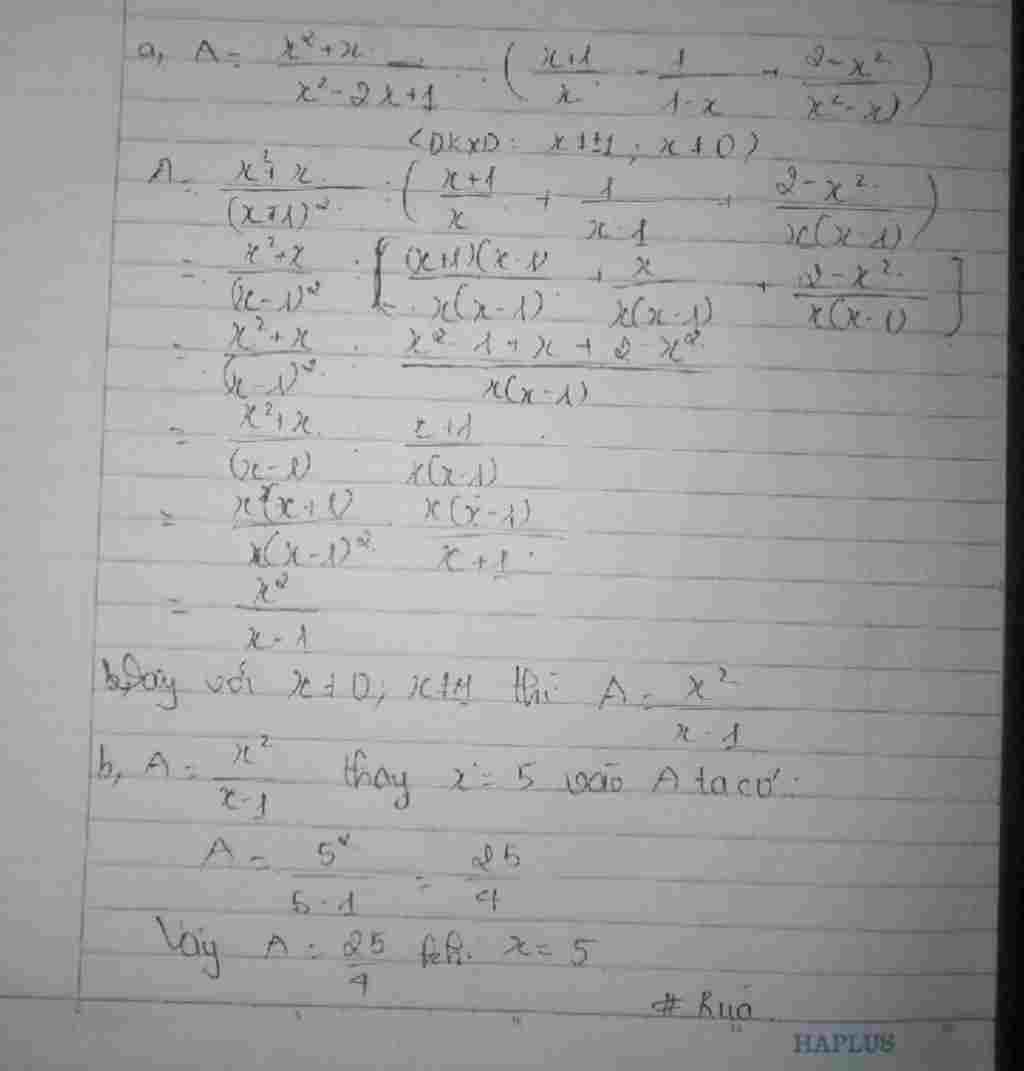 a, A = (x²+x)/(x²-2x+1) : ( (x+1)/x - 1/(1-x) + (2-x²)/(x²-x) )
(ĐKXĐ: x≠±1; x≠0)
A = (x²+x)/(x-1)² : ( (x+1)/x + 1/(x-1) + (2-x²)/(x(x-1)) )
= (x²+x)/(x-1)² : [ (x+1)(x-1)/(x(x-1)) + x/(x(x-1)) + (2-x²)/(x(x-1)) ]
= (x²+x)/(x-1)² : (x²-1+x+2-x²)/(x(x-1))
= (x²+x)/(x-1) : (x+1)/(x(x-1))
= x(x+1)/(x-1)² . x(x-1)/(x+1)
= x²/(x-1)
Vậy với x≠0; x≠±1 thì A = x²/(x-1)
b, A = x²/(x-1) thay x = 5 vào A ta có:
A = 5²/(5-1) = 25/4
Vậy A = 25/4 khi x = 5
HAPLUS